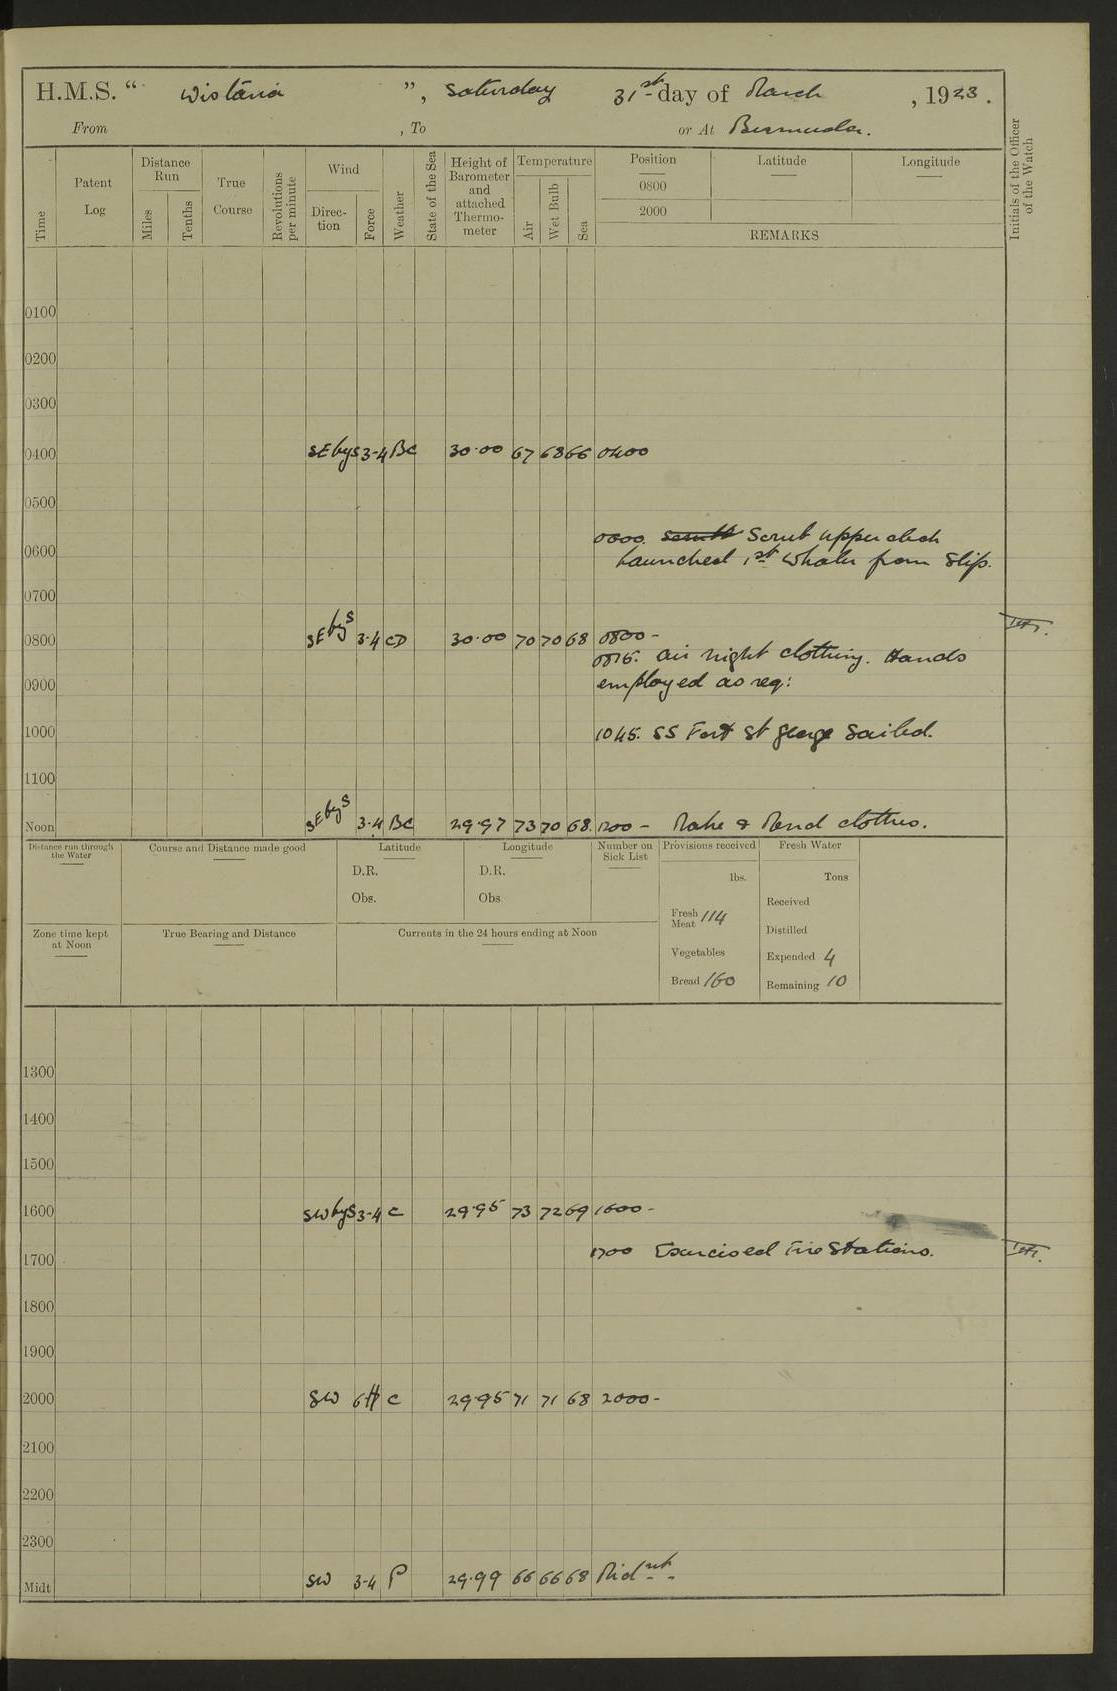 H.M.S. “ Wistaria ”, Saturday 31st day of March , 1923.
From , To or At Bermuda.
Time
Patent Log
Distance Run
Miles
Tenths
True Course
Revolutions per minute
Wind
Direc-tion
Force
Weather
State of the Sea
Height of Barometer and attached Thermo-meter
Temperature
Air
Wet Bulb
Sea
Position
0800
2000
Latitude
Longitude
REMARKS
Initials of the Officer of the Watch
0100
0200
0300
0400 SE by S 3-4 BC 30·00 67 68 66 0400
0500
Scrub upper deck
0600 Launched 1st Whaler from Slip.
0700
0800 SE by S 3·4 CD 30·00 70 70 68 0800 -
0815. Air night clothing. Hands
0900 employed as req:
1000 1045. SS Fort St George Sailed.
1100
Noon SE by S 3·4 BC 29·97 73 70 68. 1200 - Make & Mend clothes.
Distance run through the Water
Course and Distance made good
Latitude
D.R.
Obs.
Longitude
D.R.
Obs
Number on Sick List
Provisions received
lbs.
Fresh Meat 114
Vegetables
Bread 160
Fresh Water
Tons
Received
Distilled
Expended 4
Remaining 10
Zone time kept at Noon
True Bearing and Distance
Currents in the 24 hours ending at Noon
1300
1400
1500
1600 SW by S 3-4 C 29·95 73 72 69 1600 -
1700 1700 Exercised Fire Stations.
1800
1900
2000 SW C 29·95 71 71 68 2000 -
2100
2200
2300
Midt SW 3-4 P 29·99 66 66 68 Midnt -